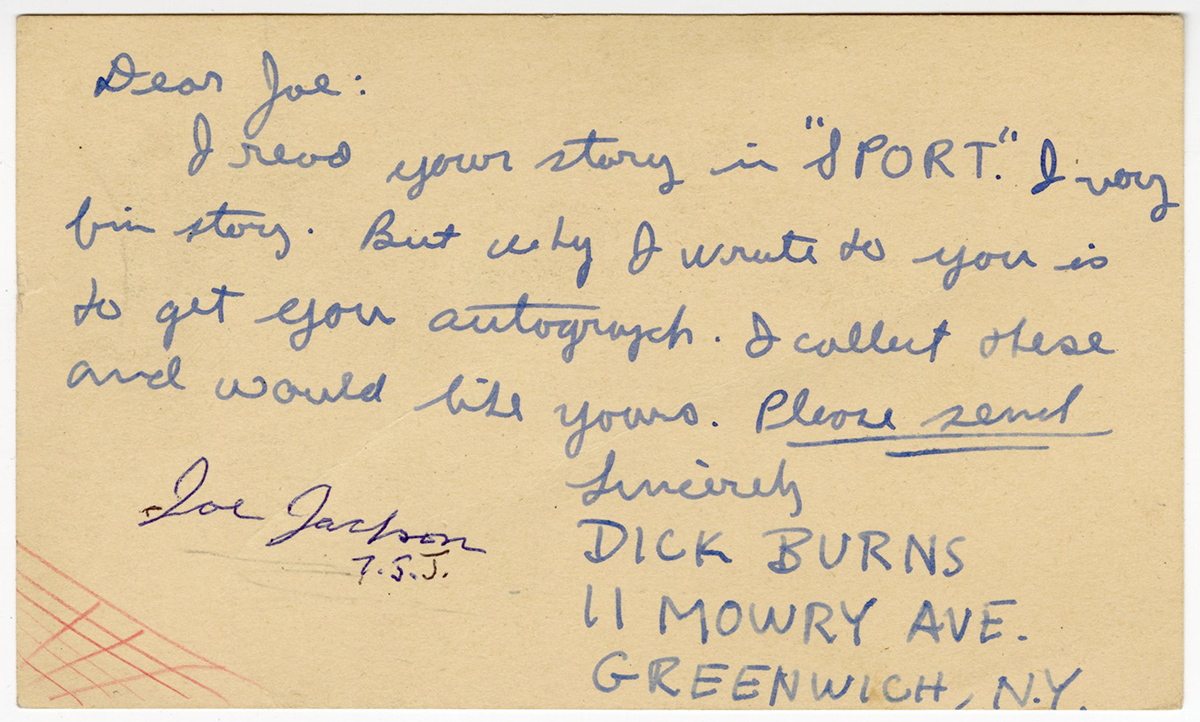 Dear Joe:
I read your story in "SPORT." I very
fin story. But why I wrote to you is
to get you autograph. I collect these
and would like yours. Please send
Sincerely
Joe Jackson
T.S.J.
DICK BURNS
11 MOWRY AVE.
GREENWICH, N.Y.